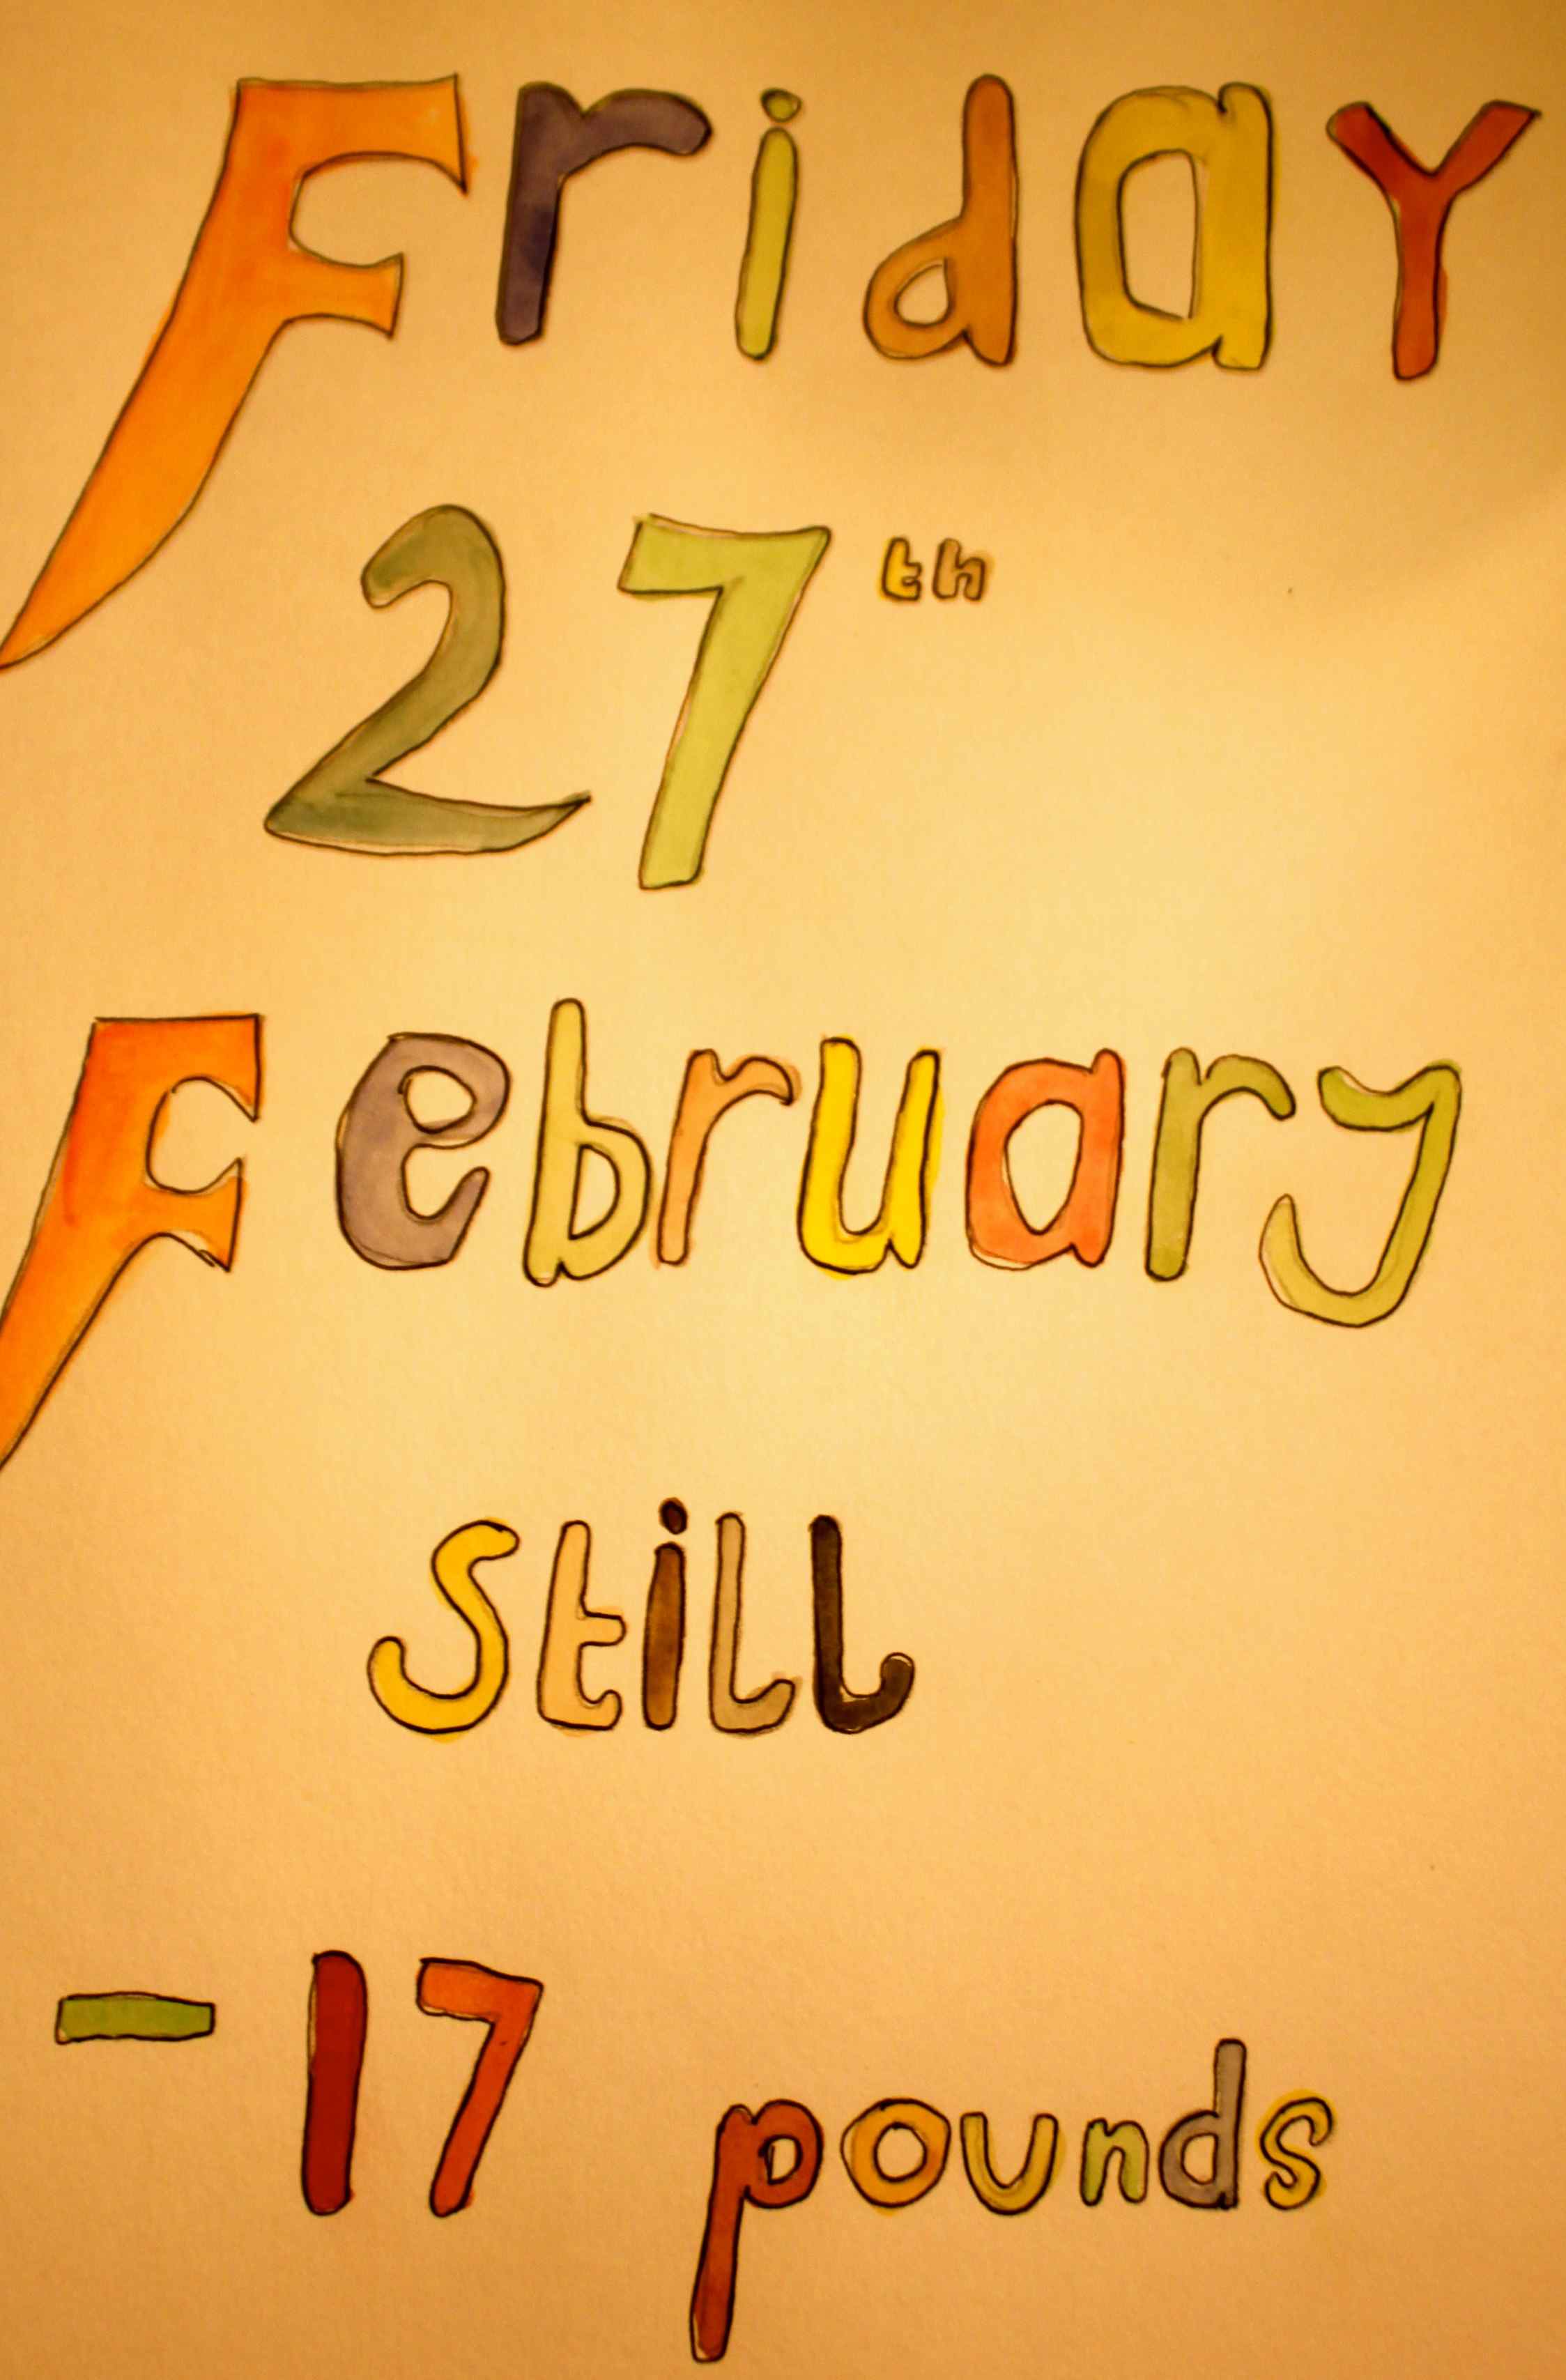 Friday
27th
February
Still
-17 pounds